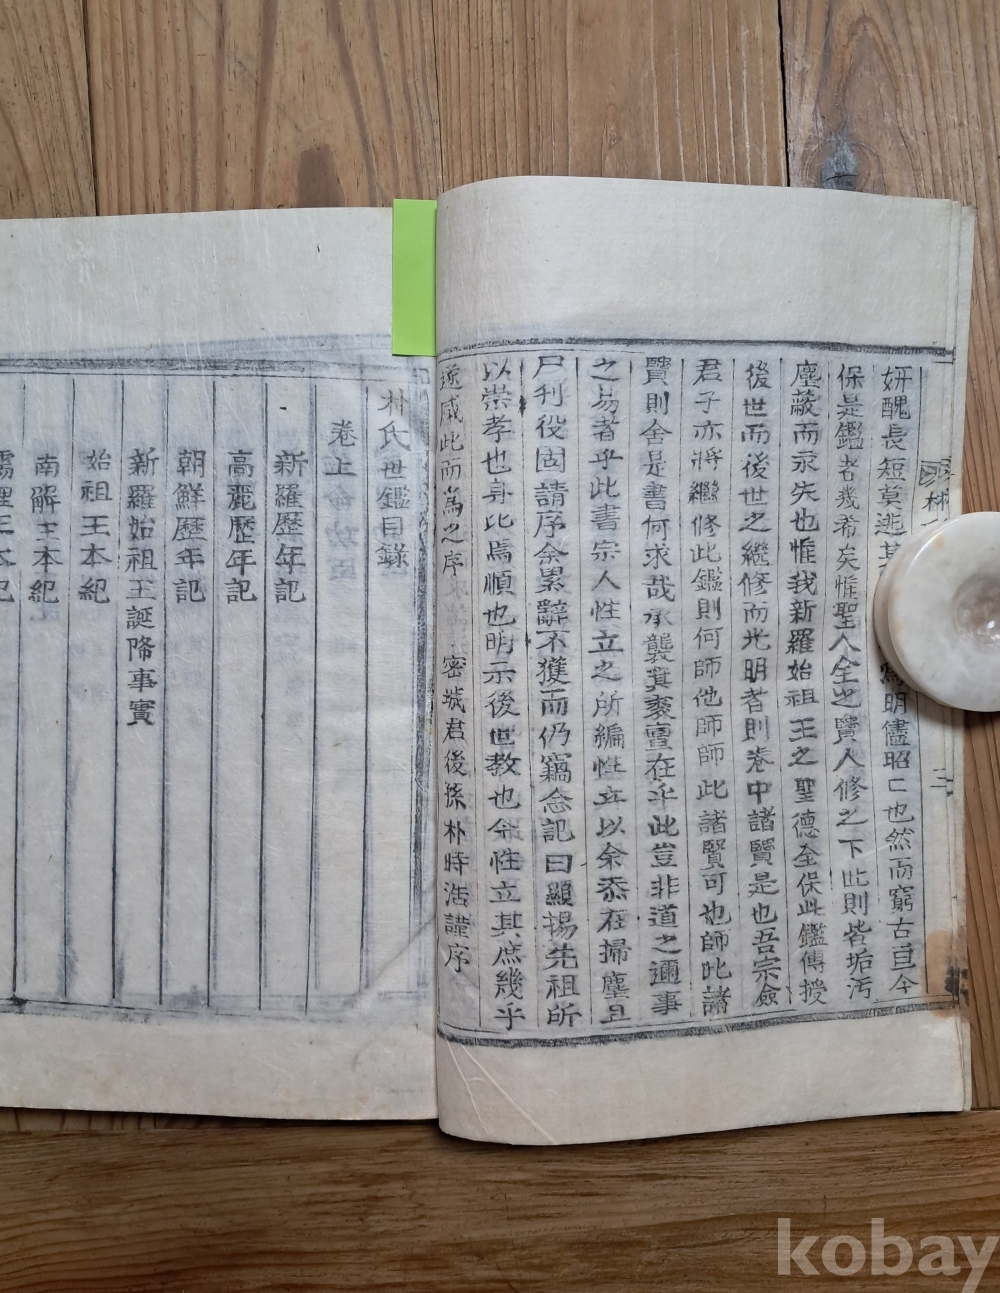 妍醜長短莫逃其 爲明儘昭亡也然而窮古亘今
保是鑑者幾希矣惟聖人全之賢人修之下此則皆垢汚
塵蔽而永失也惟我新羅始祖王之聖德全保此鑑傳授
後世而後世之繼修而光明者則卷中諸賢是也吾宗僉
君子亦將繼修此鑑則何師他師師此諸賢可也師此諸
賢則舍是書何求哉承襲箕裘亶在乎此豈非道之邇事
之易者乎此書宗人性立之所編性立以余忝在掃塵且
尸刹役固請序余累辭不獲而仍竊念記曰顯揚先祖所
以崇孝也身比焉順也明示後世教也令性立其庶幾乎
遂感此而爲之序 密城君後孫朴時浩謹序
朴氏世鑑目錄
卷上
新羅歷年記
高麗歷年記
朝鮮歷年記
新羅始祖王誕降事實
始祖王本紀
南解王本紀
儒理王本紀
朴
二
kobay